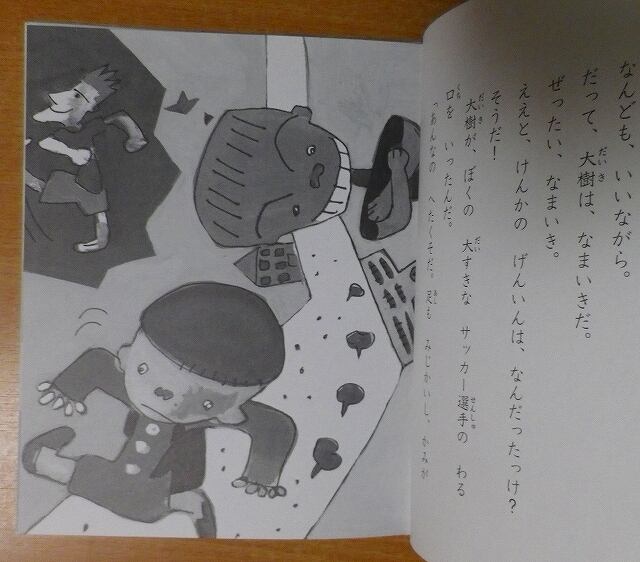 なんども、いいながら。
だって、大樹は、なまいきだ。
だいき
ぜったい、なまいき。
ええと、けんかの げんいんは、なんだったっけ?
そうだ!
大樹が、ぼくの 大すきな サッカー選手の わる
だいき だい せんしゅ
口を いったんだ。
くち
「あんなの へたくそだ。足も みじかいし、かみが
あし